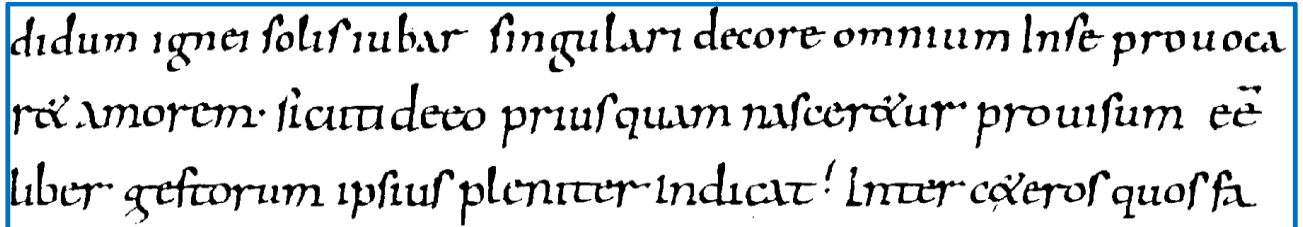 didum ignei solis iubar singulari decore omnium Inse prouoca
ret amorem· sicuti deeo priusquam nasceretur· prouisum eē
liber gestorum ipsius pleniter indicat! Inter ceteros quos fa